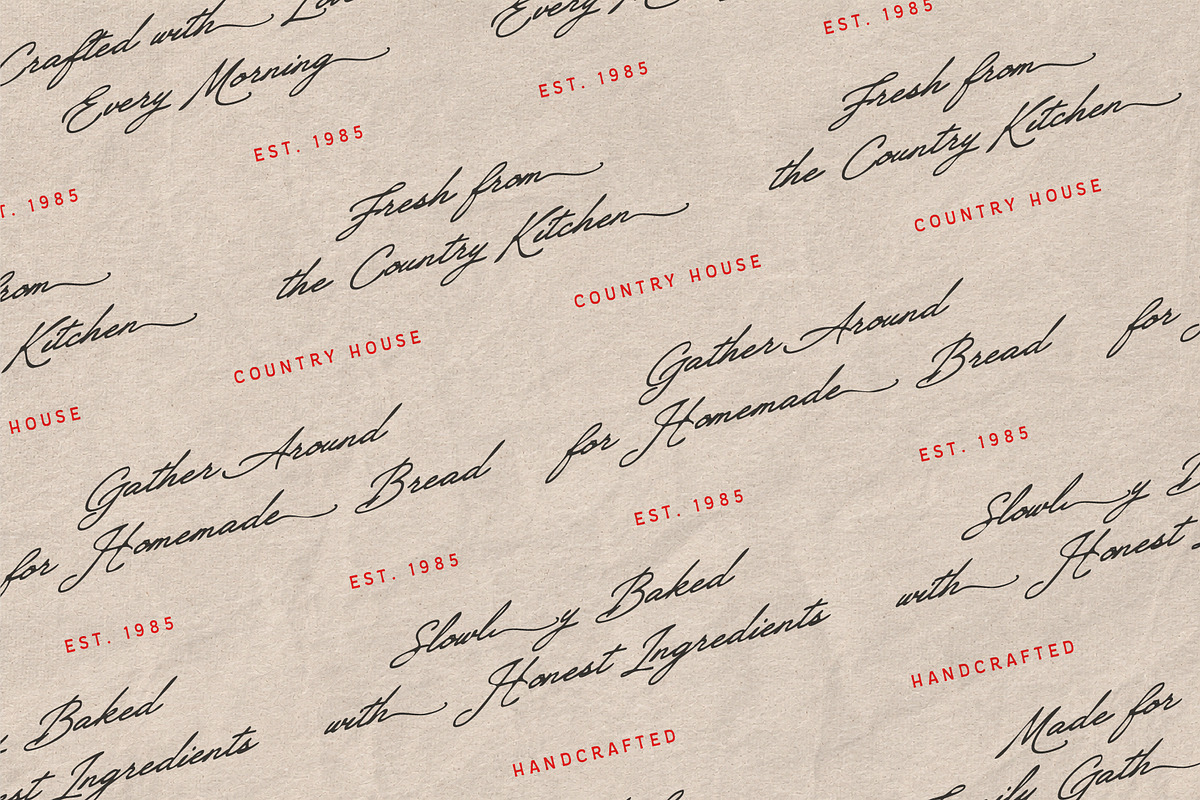 Crafted with
Every Morning
Every
EST. 1985
EST. 1985
EST. 1985
EST. 1985
Fresh from
the Country Kitchen
Fresh from
the Country Kitchen
from
Kitchen
COUNTRY HOUSE
COUNTRY HOUSE
COUNTRY HOUSE
HOUSE
Gather Around
for Homemade Bread
Gather Around
for Homemade Bread
for
EST. 1985
EST. 1985
EST. 1985
EST. 1985
Slowly
with Honest
Slowly Baked
with Honest Ingredients
Baked
Ingredients
HANDCRAFTED
HANDCRAFTED
Made for